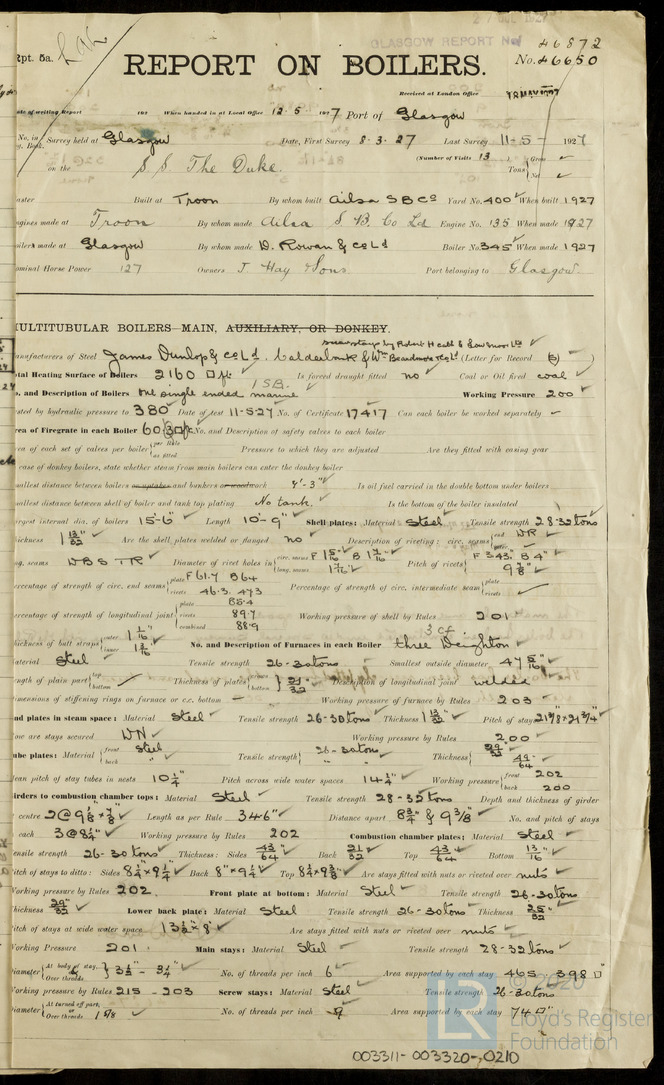 Rpt. 5a.
GLASGOW REPORT No. 46872
REPORT ON BOILERS.
No. 46650
Received at London Office 18 MAY 1927
Date of writing Report 192 When handed in at Local Office 12.5.1927 Port of Glasgow
No. in Survey held at Glasgow Date, First Survey 8.3.27 Last Survey 11-5-1927
(Number of Visits 13) Gross
on the S.S. The Duke. Tons Net
Built at Troon By whom built Ailsa S B Co Yard No. 400 When built 1927
Engines made at Troon By whom made Ailsa S. B. Co Ld Engine No. 135 When made 1927
Boilers made at Glasgow By whom made D. Rowan & Co Ld Boiler No. 845 When made 1927
Nominal Horse Power 127 Owners J. Hay & Sons Port belonging to Glasgow.
MULTITUBULAR BOILERS MAIN, AUXILIARY, OR DONKEY.
Manufacturers of Steel James Dunlop & Co Ld. Calderbank & Wm Beardmore & Co Ld (Letter for Record (S) )
Total Heating Surface of Boilers 2160 □ft Is forced draught fitted no Coal or Oil fired coal
1 S.B.
No. and Description of Boilers One single ended marine Working Pressure 200
Tested by hydraulic pressure to 380 Date of test 11-5-27 No. of Certificate 17417 Can each boiler be worked separately
Area of Firegrate in each Boiler 60 □ft No. and Description of safety valves to each boiler
Area of each set of valves per boiler per Rule as fitted Pressure to which they are adjusted Are they fitted with easing gear
In case of donkey boilers, state whether steam from main boilers can enter the donkey boiler
Smallest distance between boilers or uptakes and bunkers or woodwork 4'-3" Is oil fuel carried in the double bottom under boilers
Smallest distance between shell of boiler and tank top plating No tank. Is the bottom of the boiler insulated
Largest internal dia. of boilers 15'-6" Length 10'-9" Shell plates: Material Steel Tensile strength 28-32 tons
Thickness 1 13/32 Are the shell plates welded or flanged no Description of riveting: circ. seams end DR
long. seams DBS TR Diameter of rivet holes in circ. seams F 1 5/16 B 1 7/16 long. seams 1 7/16 Pitch of rivets F 3.43" B 4" 9 7/8"
Percentage of strength of circ. end seams plate F 61.7 B 64 rivets 46.3 47.3 Percentage of strength of circ. intermediate seam plate rivets
Percentage of strength of longitudinal joint plate 85.4 rivets 89.7 combined 88.9 Working pressure of shell by Rules 201
Thickness of butt straps outer 1 1/16" inner 1 3/16" No. and Description of Furnaces in each Boiler 3 CF three Deighton
Material Steel Tensile strength 26-30 tons Smallest outside diameter
Length of plain part top bottom Thickness of plates bottom 21/32 Description of longitudinal joint welded
Dimensions of stiffening rings on furnace or c.c. bottom Working pressure of furnace by Rules 203
End plates in steam space: Material Steel Tensile strength 26-30 tons Thickness 1 13/32 Pitch of stays 21 7/8" × 21 3/4"
How are stays secured DN Working pressure by Rules 200
Tube plates: Material front Steel back " Tensile strength 26-30 tons " Thickness 29/32 49/64
Mean pitch of stay tubes in nests 10 1/4 Pitch across wide water spaces 14 1/4" Working pressure front 202 back 200
Girders to combustion chamber tops: Material Steel Tensile strength 28-32 tons Depth and thickness of girder
centre 2 @ 9 1/8" × 7/8" Length as per Rule 34.6" Distance apart 8 3/4" & 9 3/8" No. and pitch of stays
each 3 @ 8 1/4" Working pressure by Rules 202 Combustion chamber plates: Material Steel
Tensile strength 26-30 tons Thickness: Sides 43/64 Back 21/32 Top 43/64 Bottom 13/16
Pitch of stays to ditto: Sides 8 1/4" × 9 1/4" Back 8" × 9 1/4" Top 8 1/4" × 9 3/8" Are stays fitted with nuts or riveted over nuts
Working pressure by Rules 202. Front plate at bottom: Material Steel Tensile strength 26-30 tons
Thickness 29/32 Lower back plate: Material Steel Tensile strength 26-30 tons Thickness 25/32
Pitch of stays at wide water space 13 1/2" × 8" Are stays fitted with nuts or riveted over nuts
Working Pressure 201. Main stays: Material Steel Tensile strength 28-32 tons
Diameter At body of stay, Over threads 3 1/2 - 3 1/4" No. of threads per inch 6 Area supported by each stay 465 - 398 □"
Working pressure by Rules 215 - 203 Screw stays: Material Steel Tensile strength 26-30 tons
Diameter At turned off part, Over threads 1 5/8 No. of threads per inch 9 Area supported by each stay 74 □"
© 2020
LR
Lloyd's Register
Foundation
003311-003320-0210